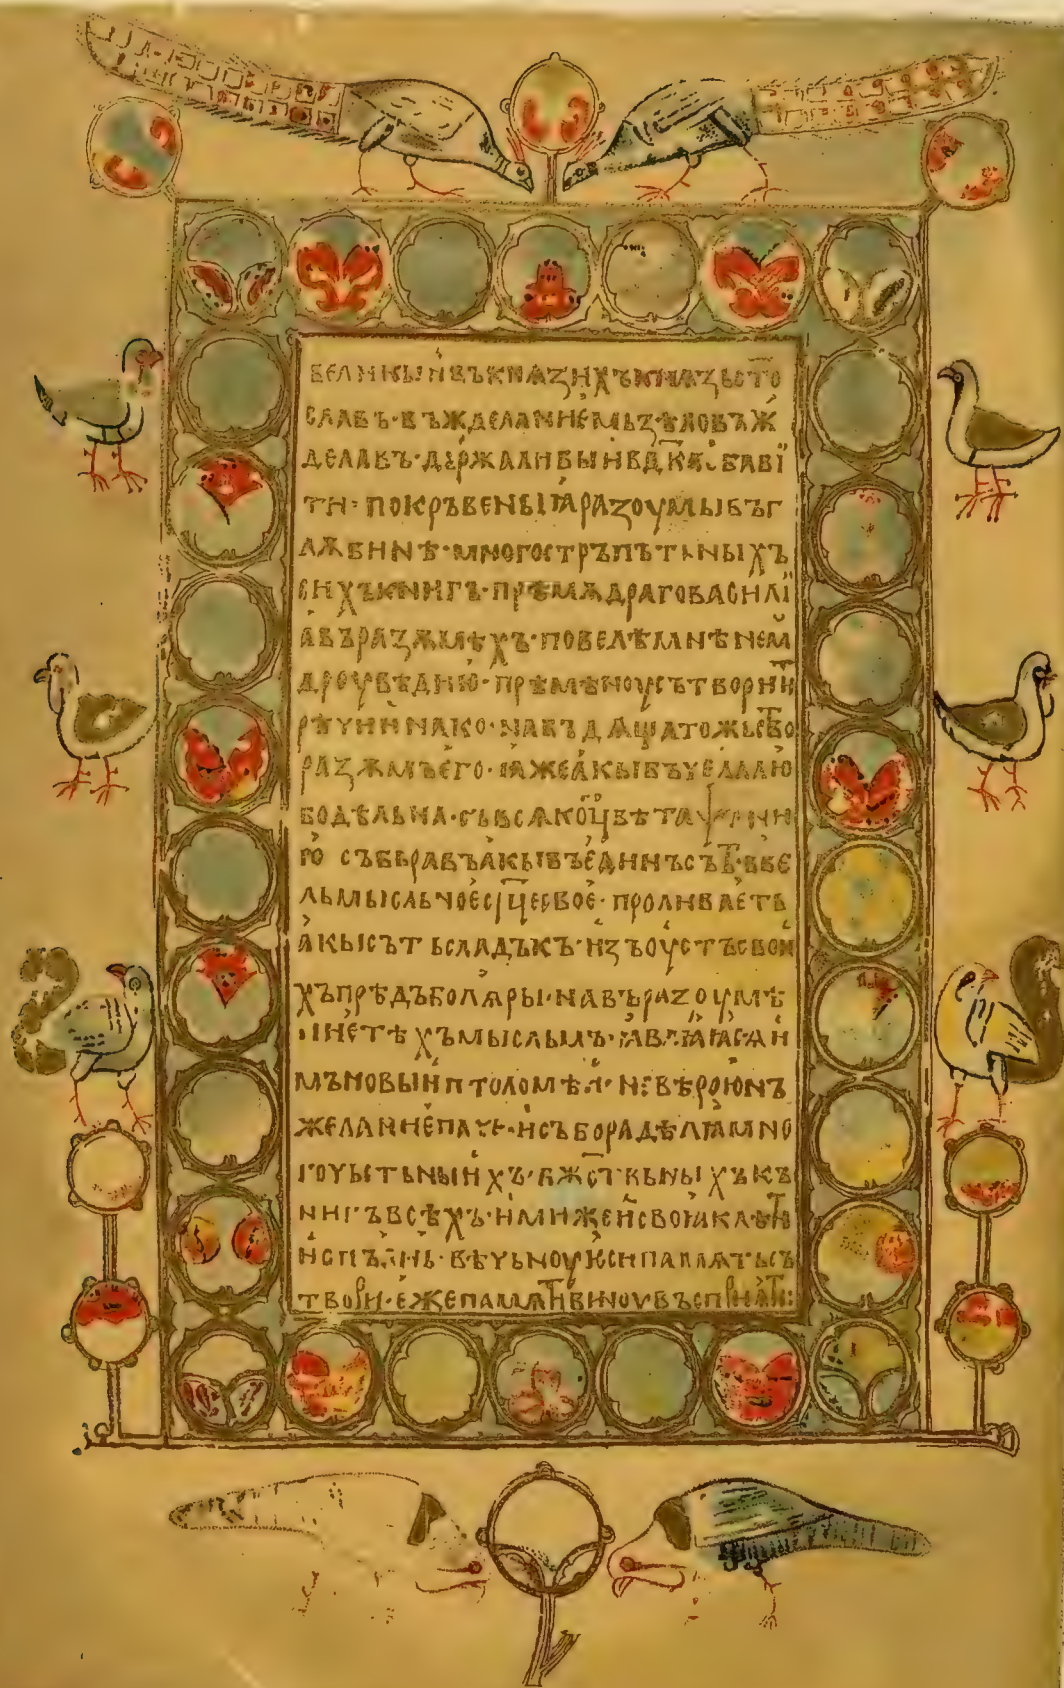 ВЕЛИКЫИ ВЪ КНѦЗИХЪ КНѦЗЬ СТО
СЛАВЪ · ВЪЖДЕЛАНИЕМЬ ЗѢЛО ВЪЖ
ДЕЛАВЪ · ДЕРЖАЛИВЫИ ВЛДКА ѠБАВІ
ТИ ПОКРЪВЕНЫѨ РАЗОУМЫ ВЪ Г
ЛѪБИНѢ · МНОГОСТРЪПЪТЬНЫХЪ
СИХЪ КНИГЪ · ПРѢМѪДРАГО ВАСИЛІ
А ВЪ РАЗѪМѢХЪ · ПОВЕЛѢ МНѢ НЕМ
ДРОУВѢДИЮ · ПРѢМѢНОУ СЪТВОРИТИ
РѢЧИИ ИНАКО · НАБЪДѦЩА ТОЖЬСТВО
РАЗѪМЪ ЕГО · ѨЖЕ АКЫ БЪЧЕЛА ЛЮ
БОДѢЛЬНА · СЪ ВСѦКОЦВѢТА ПСАНИ
Ю СЪБЬРАВЪ АКЫ ВЪ ЕДИНЪ СЪТЪ · ВЪ ВЕ
ЛЬМЫСЛЬНОЕ СРЦЕ СВОЕ · ПРОЛИВАЕТЬ
АКЫ СЪТЪ СЛАДЪКЪ · ИЗЪ ОУСТЪ СВОИ
ХЪ ПРѢДЪ БОЛѦРЫ · НА ВЪРАЗОУМѢ
НИЕ ТѢХЪ МЫСЛЬМЪ · ѨВЛѨѨСѦ И
МЪ НОВЫИ ПТОЛОМѢИ · НЕ ВѢРОЮ НЪ
ЖЕЛАНИЕ ПАЧЕ · И СЪБОРА ДѢЛѨ МНО
ГОЧЬСТЬНЫИХЪ · БЖСТВЬНЫХЪ КЪ
НИГЪ ВСѢХЪ · ИМИ ЖЕ И СВОѨ КЛѢТИ
ИСПЪЛНЬ · ВѢЧЬНОУЮ СИ ПАМѦТЬ СЪ
ТВОРИ · ЕЖЕ ПАМѦТИ ВИНОУ ВЪСПРИѨТИ: